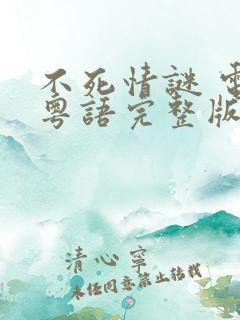 不死情謎 電
粵語完整版
清心寧
未经同意禁止转载